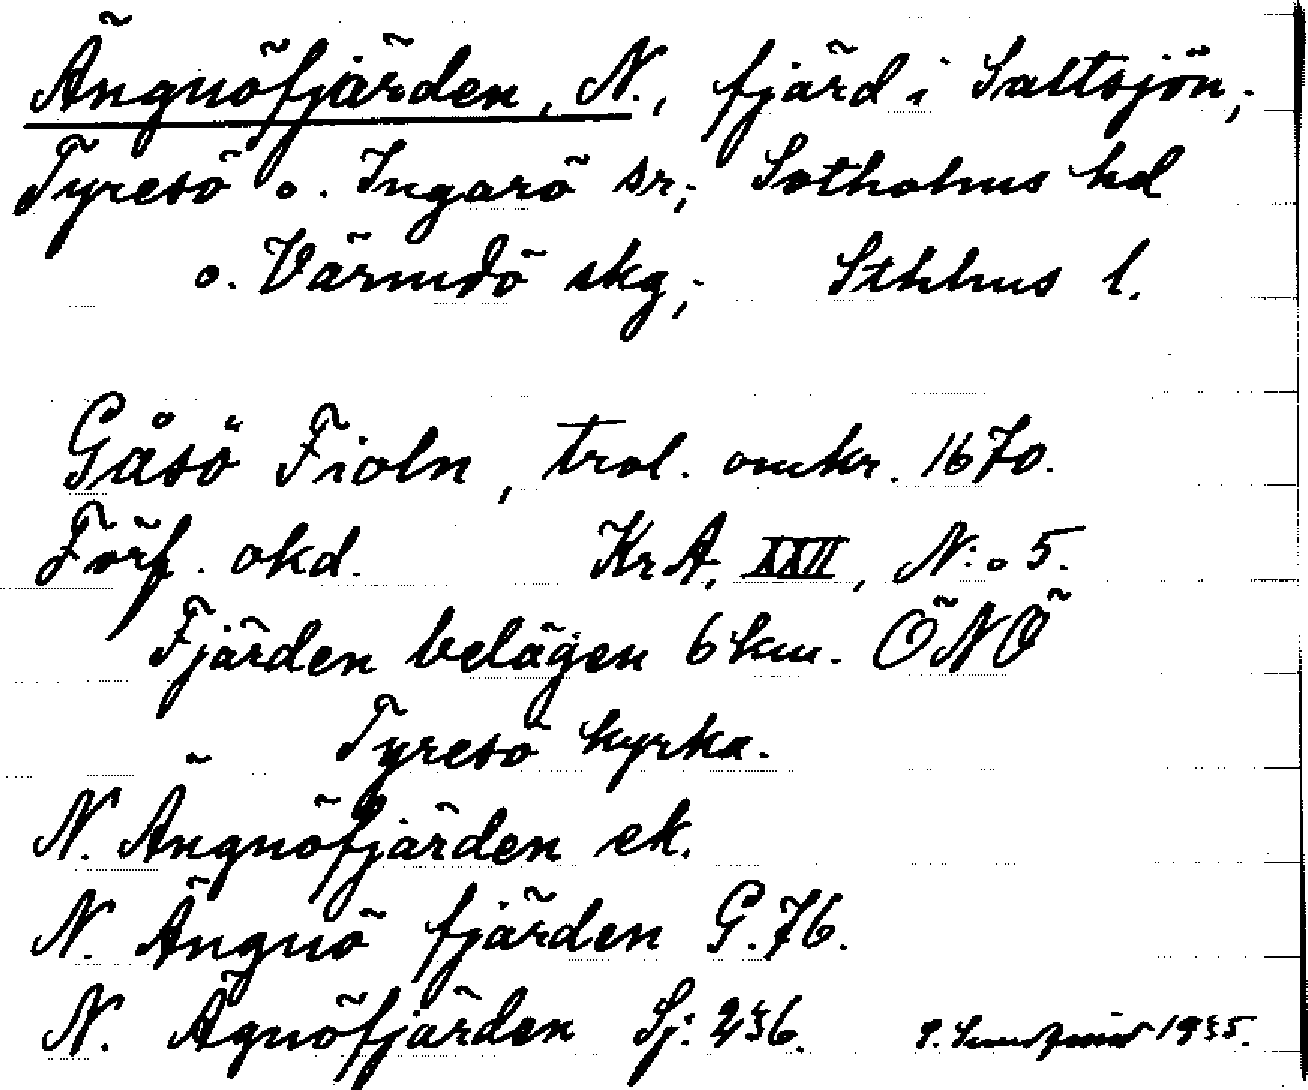 Ängnöfjärden, N., fjärd i Saltsjön;
Tyresö o. Ingarö sr; Sotholms hd
o. Värmdö skg; Sthlms l.
Gåsö Fioln, trol. omkr. 1670.
Förf. okd. KrA, XXII, N:o 5.
Fjärden belägen 6 km. ÖNÖ
" Tyresö kyrka.
N. Ängnöfjärden ek.
N. Ängnö fjärden G.76.
N. Ägnöfjärden Sj: 236. 1935.